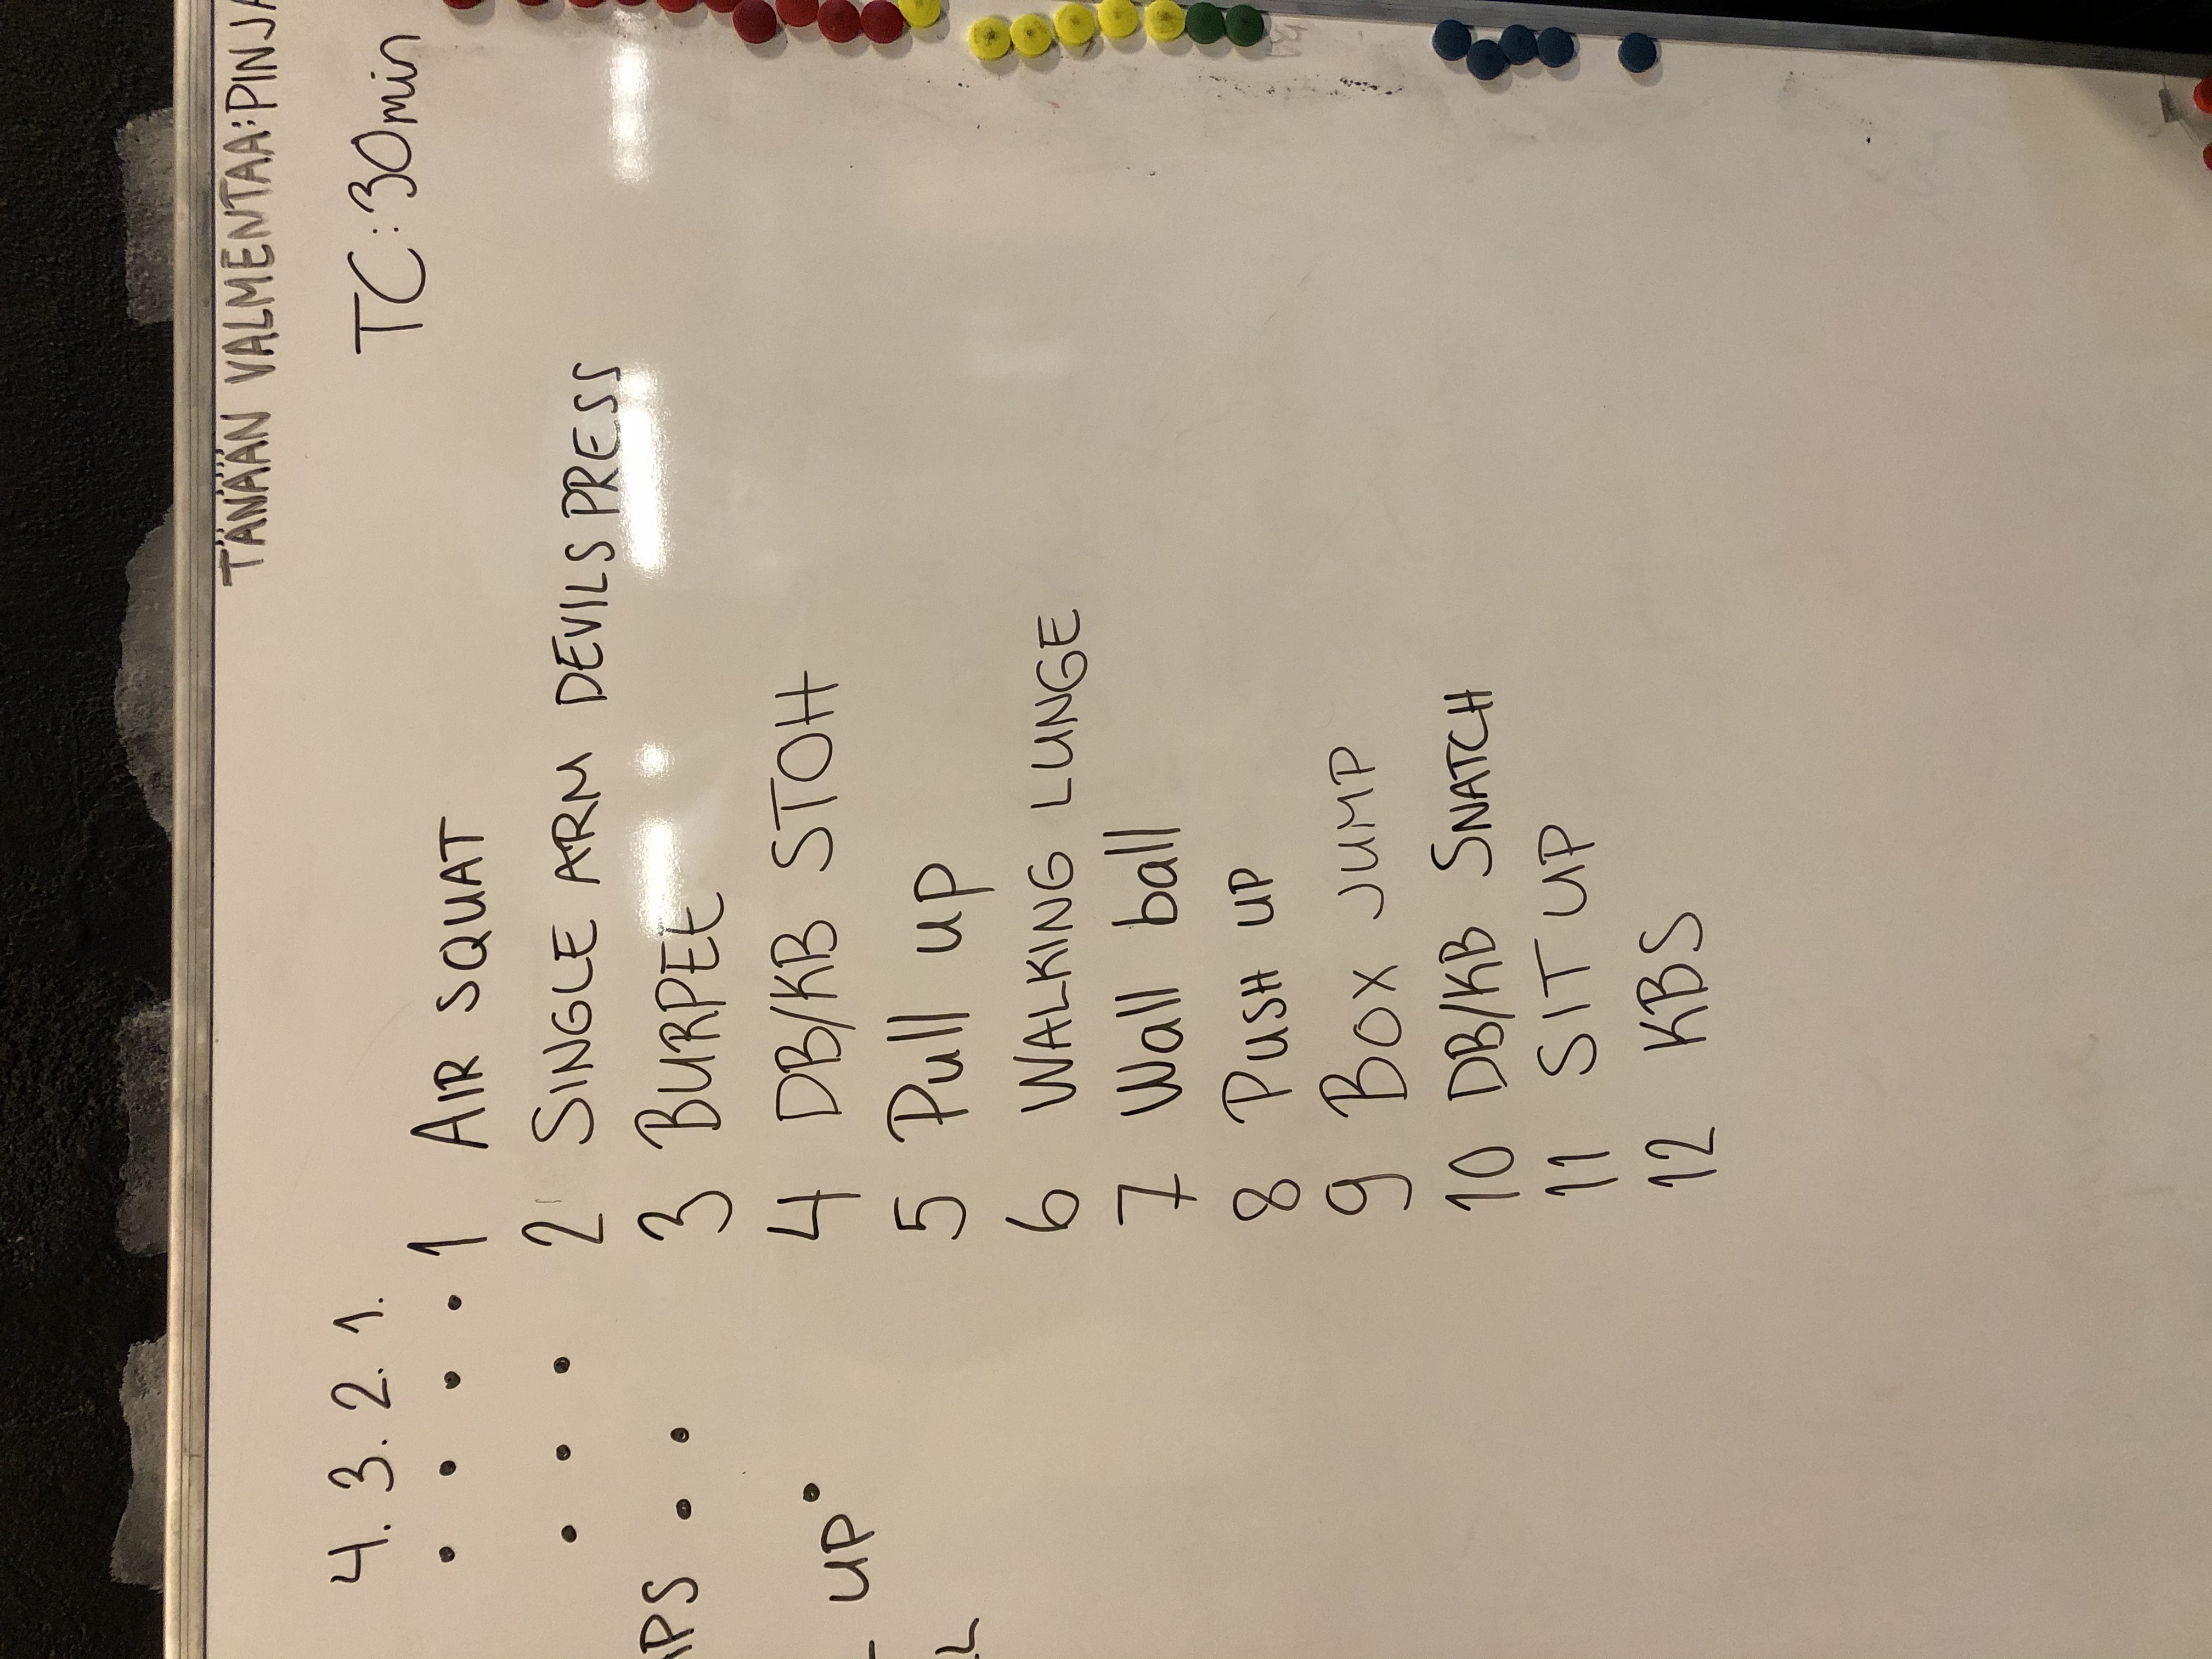 TÄNÄÄN VALMENTAA: PINJA
TC: 30min
4. 3. 2. 1.
• • • • 1 AIR SQUAT
• • • 2 SINGLE ARM DEVILS PRESS
• • 3 BURPEE
• 4 DB/KB STOH
UP
5 Pull up
6 WALKING LUNGE
7 Wall ball
8 PUSH UP
9 BOX JUMP
10 DB/KB SNATCH
11 SIT UP
12 KBS